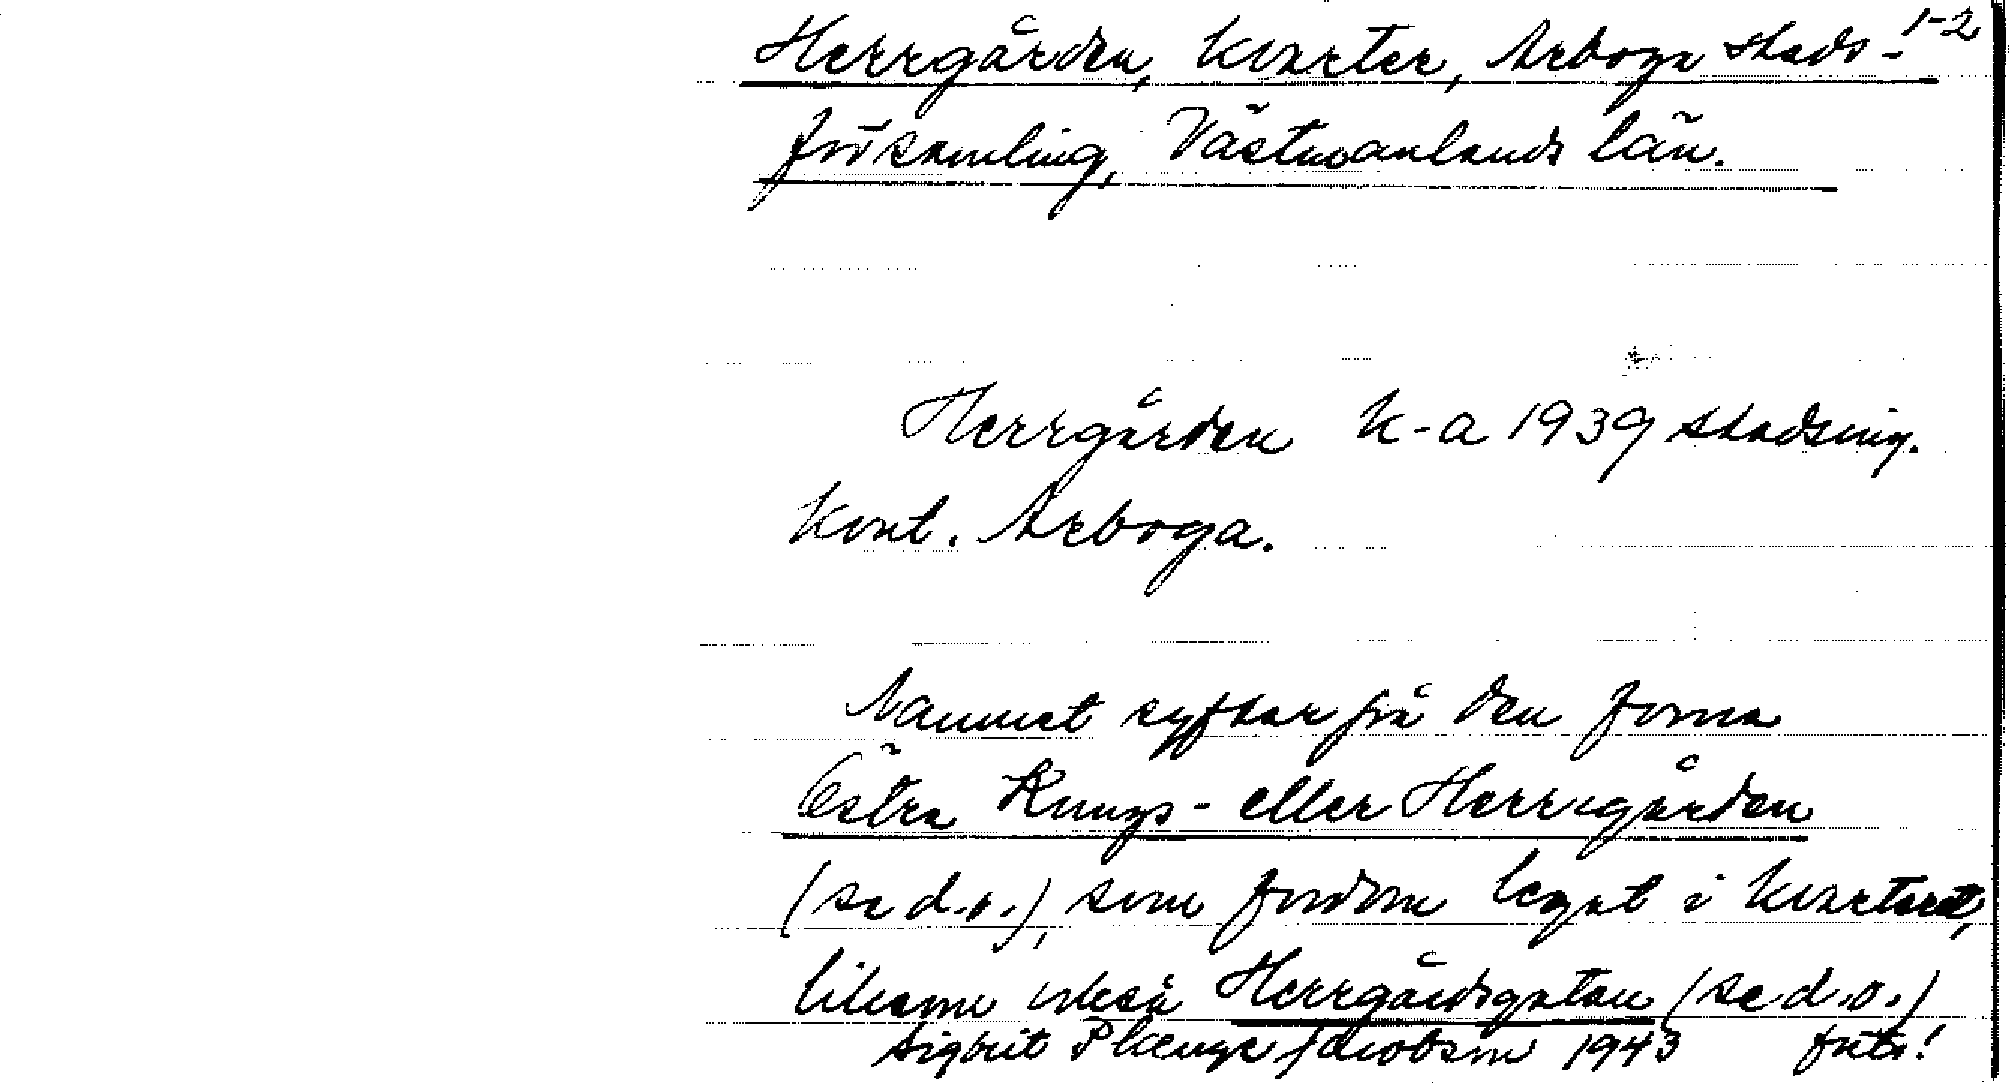 Herrgården, kvarter, Arboga stads- 1-2
församling, Västmanlands län.
Herrgården k-a 1939 stadsing.
kont. Arboga.
Namnet syftar på den forna
Östra Kungs- eller Herregården
(se d.o.), som fordom legat i kvarteret,
liksom också Herrgårdsgatan (se d.o.)
Sigbrit Plænge Jacobson 1943 forts!